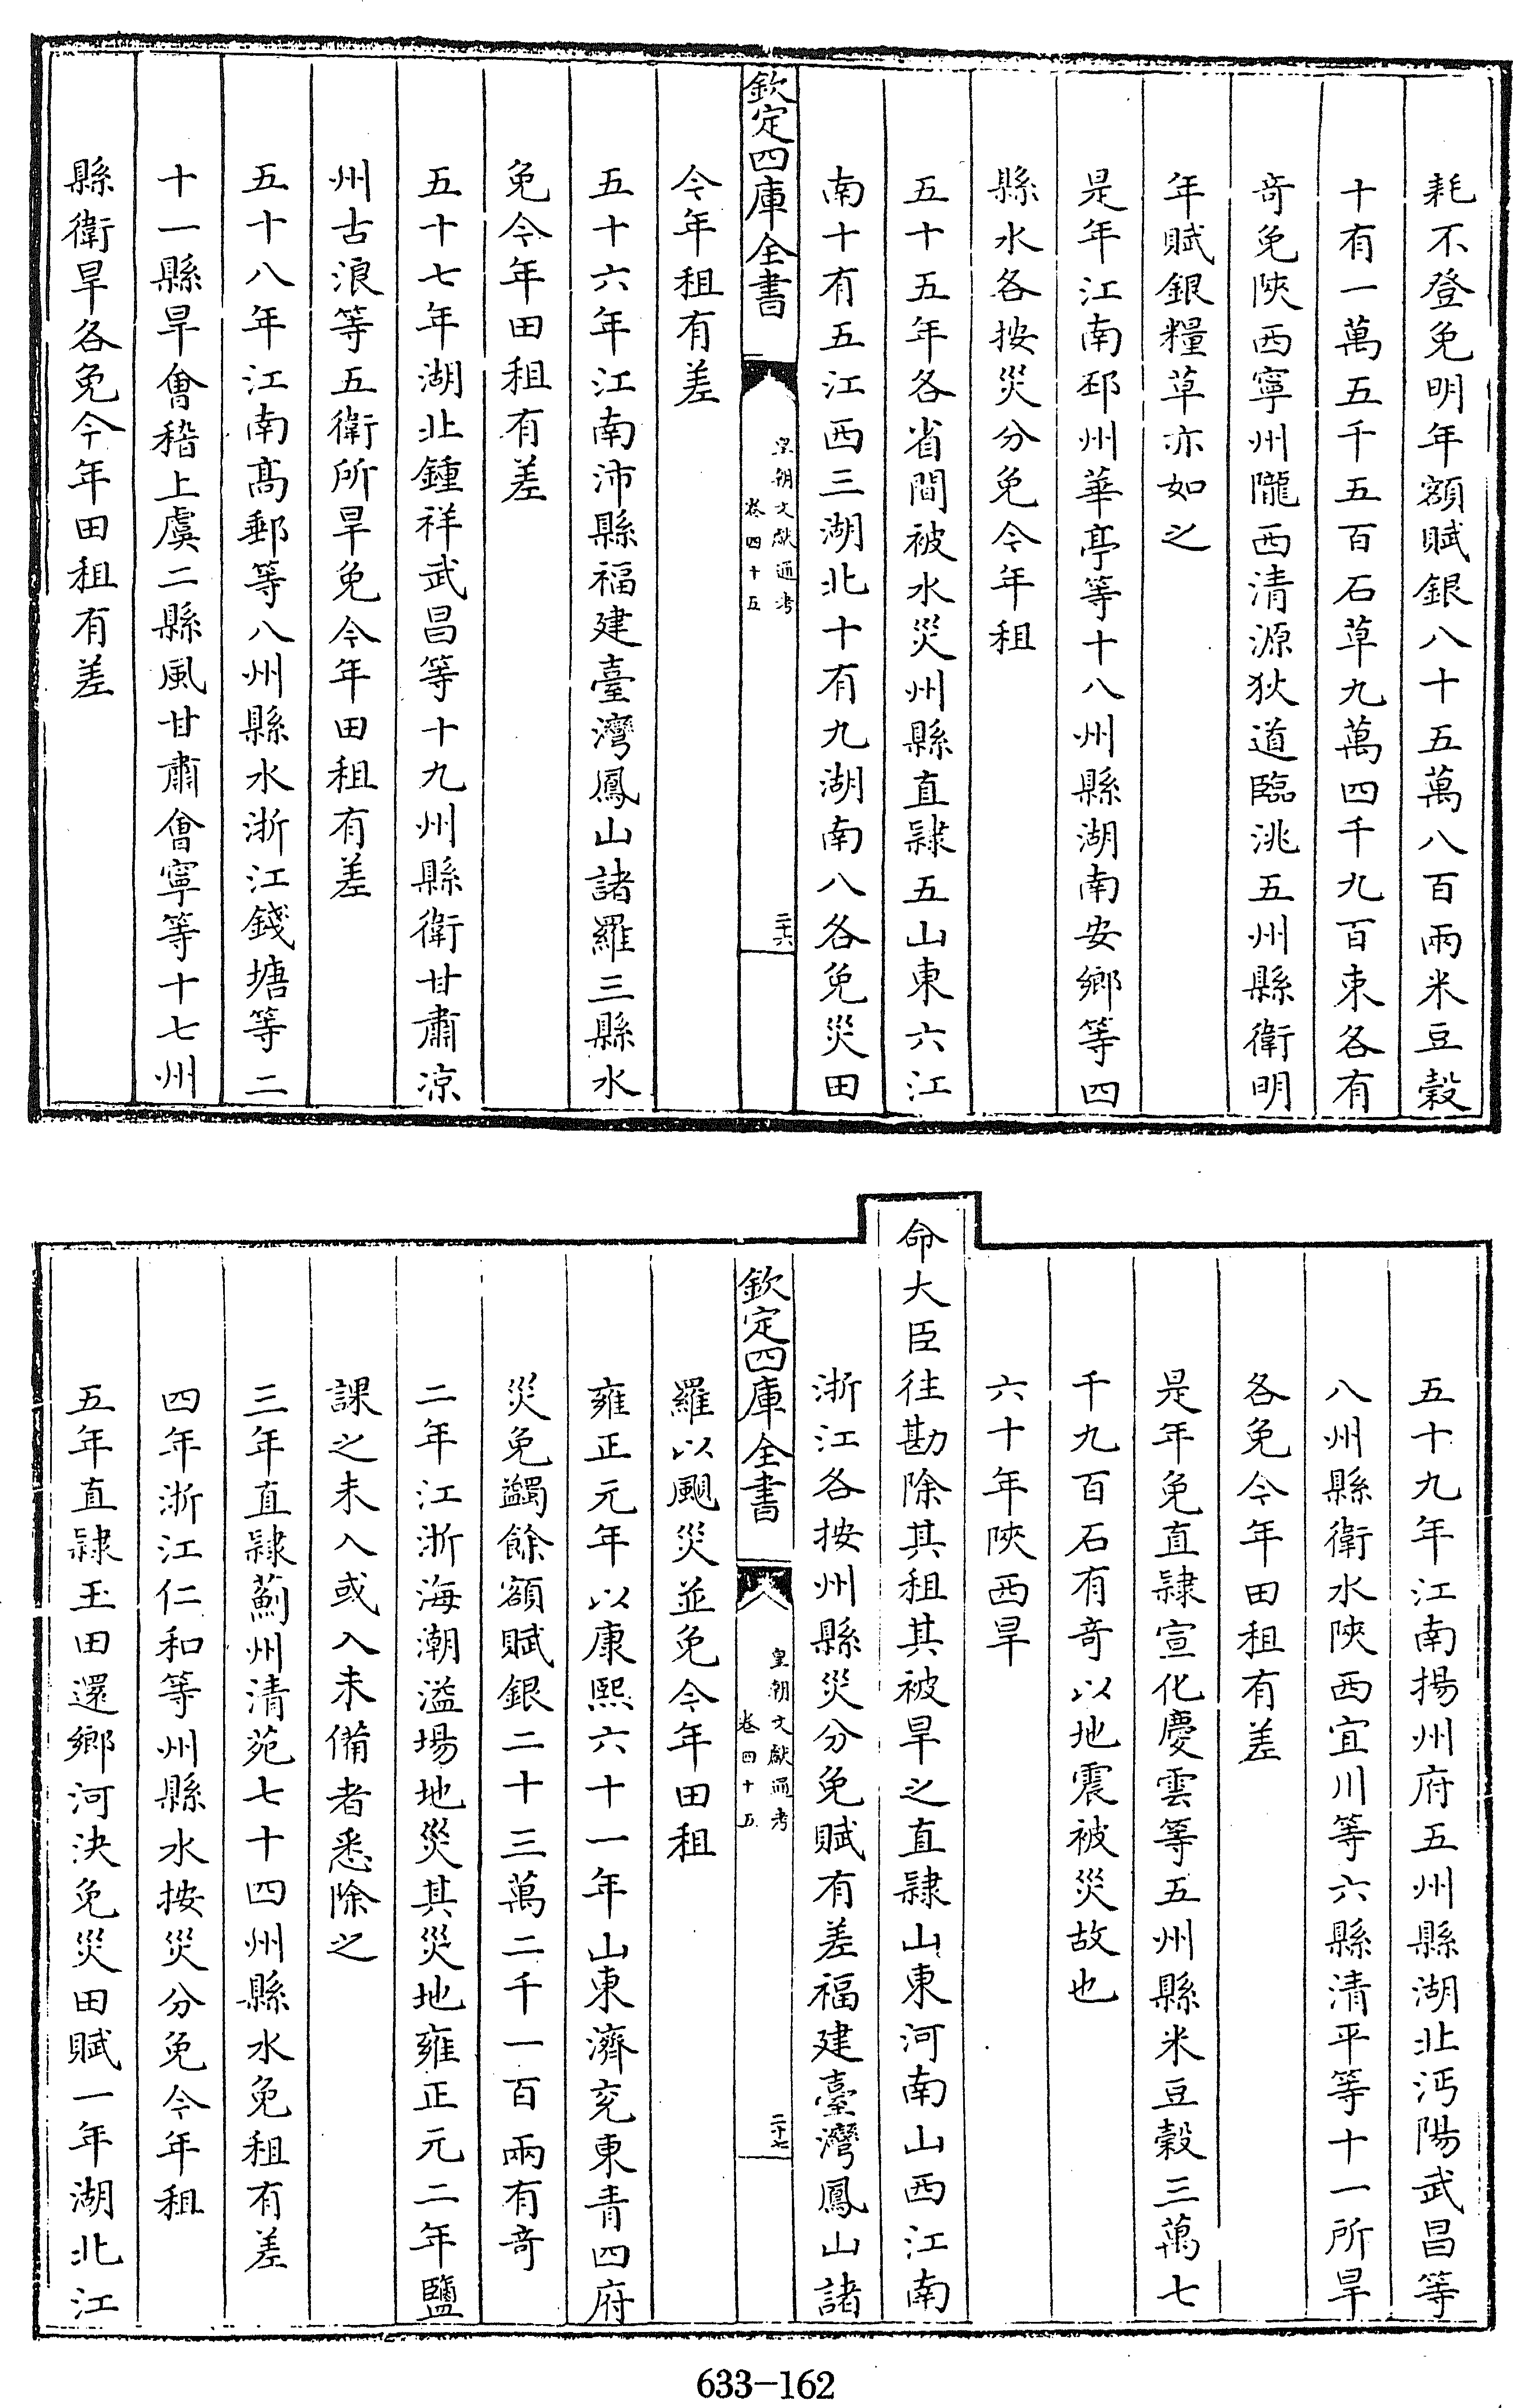 耗不登免明年額賦銀八十五萬八百兩米豆穀
十有一萬五千五百石草九萬四千九百束各有
竒免陜西寧州隴西清源狄道臨洮五州縣衛明
年賦銀糧草亦如之
是年江南邳州華亭等十八州縣湖南安鄉等四
縣水各按災分免今年租
五十五年各省間被水災州縣直隸五山東六江
南十有五江西三湖北十有九湖南八各免災田
欽定四庫全書
皇朝文獻通考
卷四十五
二十六
今年租有差
五十六年江南沛縣福建臺灣鳳山諸羅三縣水
免今年田租有差
五十七年湖北鍾祥武昌等十九州縣衛甘肅凉
州古浪等五衛所旱免今年田租有差
五十八年江南髙郵等八州縣水浙江錢塘等二
十一縣旱㑹稽上虞二縣風甘肅㑹寧等十七州
縣衛旱各免今年田租有差
五十九年江南揚州府五州縣湖北沔陽武昌等
八州縣衛水陜西宜川等六縣清平等十一所旱
各免今年田租有差
是年免直隸宣化慶雲等五州縣米豆穀三萬七
千九百石有竒以地震被災故也
六十年陜西旱
命大臣往勘除其租其被旱之直隸山東河南山西江南
浙江各按州縣災分免賦有差福建臺灣鳳山諸
欽定四庫全書
皇朝文獻通考
卷四十五
二十七
羅以颶災並免今年田租
雍正元年以康熙六十一年山東濟兖東青四府
災免蠲餘額賦銀二十三萬二千一百兩有竒
二年江浙海潮溢場地災其災地雍正元二年鹽
課之未入或入未備者悉除之
三年直隸薊州清苑七十四州縣水免租有差
四年浙江仁和等州縣水按災分免今年租
五年直隸玉田還鄉河決免災田賦一年湖北江
633-162